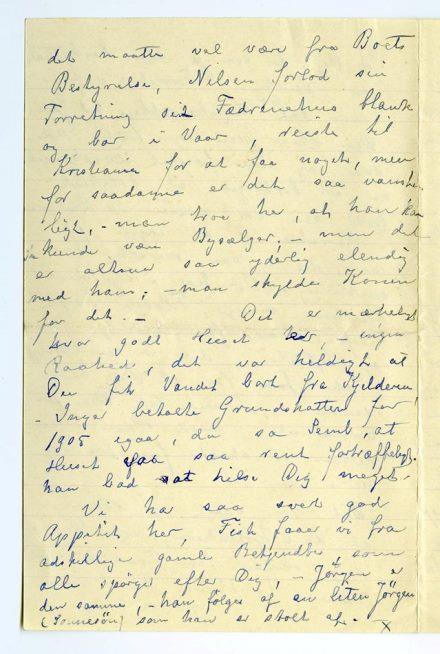 det maatte vel være fra Boets
Bestyrelse, Nilsen forlod sin
Forretning sit Fædrenehus blank
og bar i Vaar, reiste til
Kristiania for at faa noget, men
for saadanne er det saa vanske
ligt, - man troe her, at han kan
kunde være Bysælger, - men det
er altsaa saa yderlig elendig
med ham; - man skylde Konen
for det. - Det er mærkeligt
hvor godt Huset er, - ingen
Raahed, det var heldigt at
Du fik Vandet bort fra Kjelderen,
- Inger betalte Grundskatten for
1905 igaar, da sa Semb, at
Huset saa saa rent fortræffeligt.
han bad at hilse Dig meget
Vi har saa svert god
Appetit her, Fisk faaer vi fra
adskillige gamle Bekjendte, som
alle spörger efter Dig, - Jørgen er
den samme, - han følges af en liten Jørgen
(Sonnesøn) som han er stolt af. - x